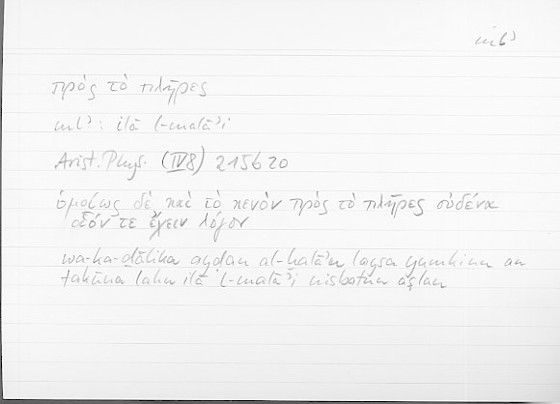 mlʾ
πρὸς τὸ πλῆρες
mlʾ: ilā l-malāʾi
Arist. Phys. (IV 8) 215b20
ὁμοίως δὲ καὶ τὸ κενὸν πρὸς τὸ πλῆρες οὐδένα
οἷόν τε ἔχειν λόγον
wa-ka-ḏālika ayḍan al-ḫalāʾu laysa yumkinu an
takūna lahu ilā l-malāʾi nisbatun aṣlan